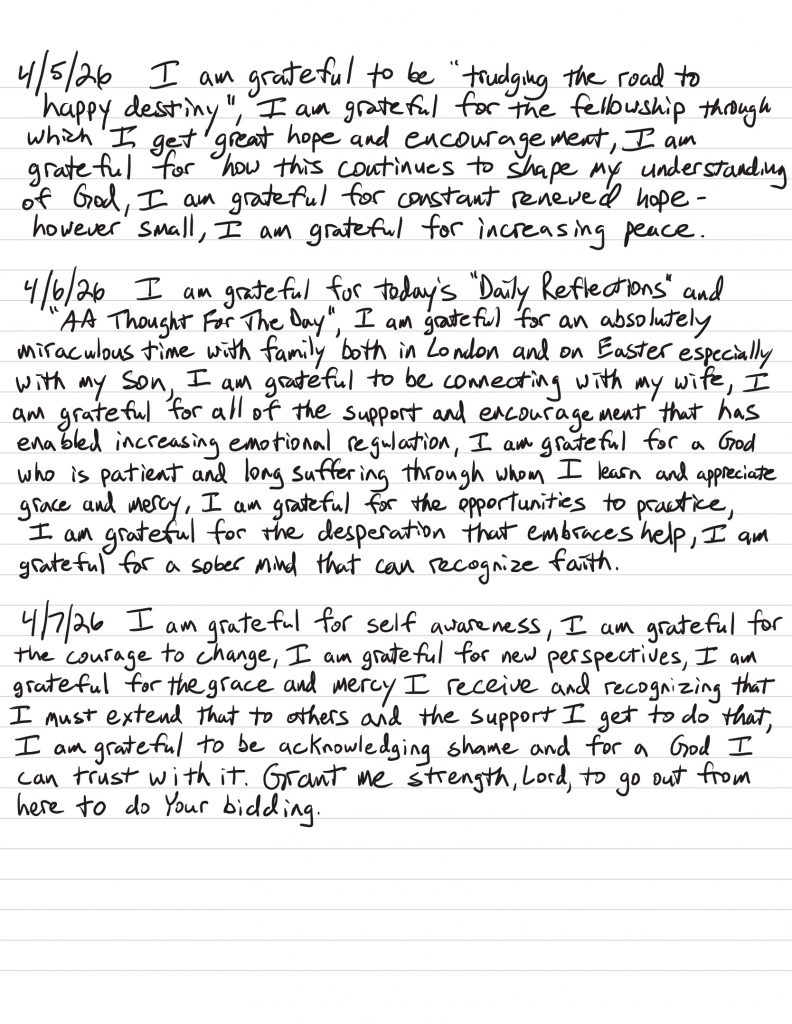 4/5/26 I am grateful to be "trudging the road to
happy destiny", I am grateful for the fellowship through
which I get great hope and encouragement, I am
grateful for how this continues to shape my understanding
of God, I am grateful for constant renewed hope -
however small, I am grateful for increasing peace.
4/6/26 I am grateful for today's "Daily Reflections" and
"AA Thought For The Day", I am grateful for an absolutely
miraculous time with family both in London and on Easter especially
with my son, I am grateful to be connecting with my wife, I
am grateful for all of the support and encouragement that has
enabled increasing emotional regulation, I am grateful for a God
who is patient and long suffering through whom I learn and appreciate
grace and mercy, I am grateful for the opportunities to practice,
I am grateful for the desperation that embraces help, I am
grateful for a sober mind that can recognize faith.
4/7/26 I am grateful for self awareness, I am grateful for
the courage to change, I am grateful for new perspectives, I am
grateful for the grace and mercy I receive and recognizing that
I must extend that to others and the support I get to do that,
I am grateful to be acknowledging shame and for a God I
can trust with it. Grant me strength, Lord, to go out from
here to do Your bidding.